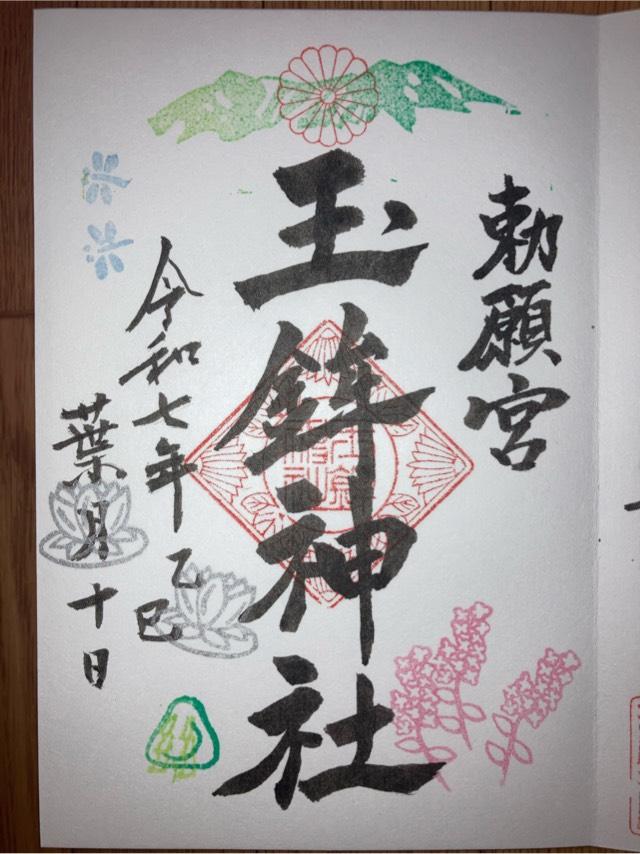 勅願宮
玉鉾神社
令和七年乙巳
葉月十日